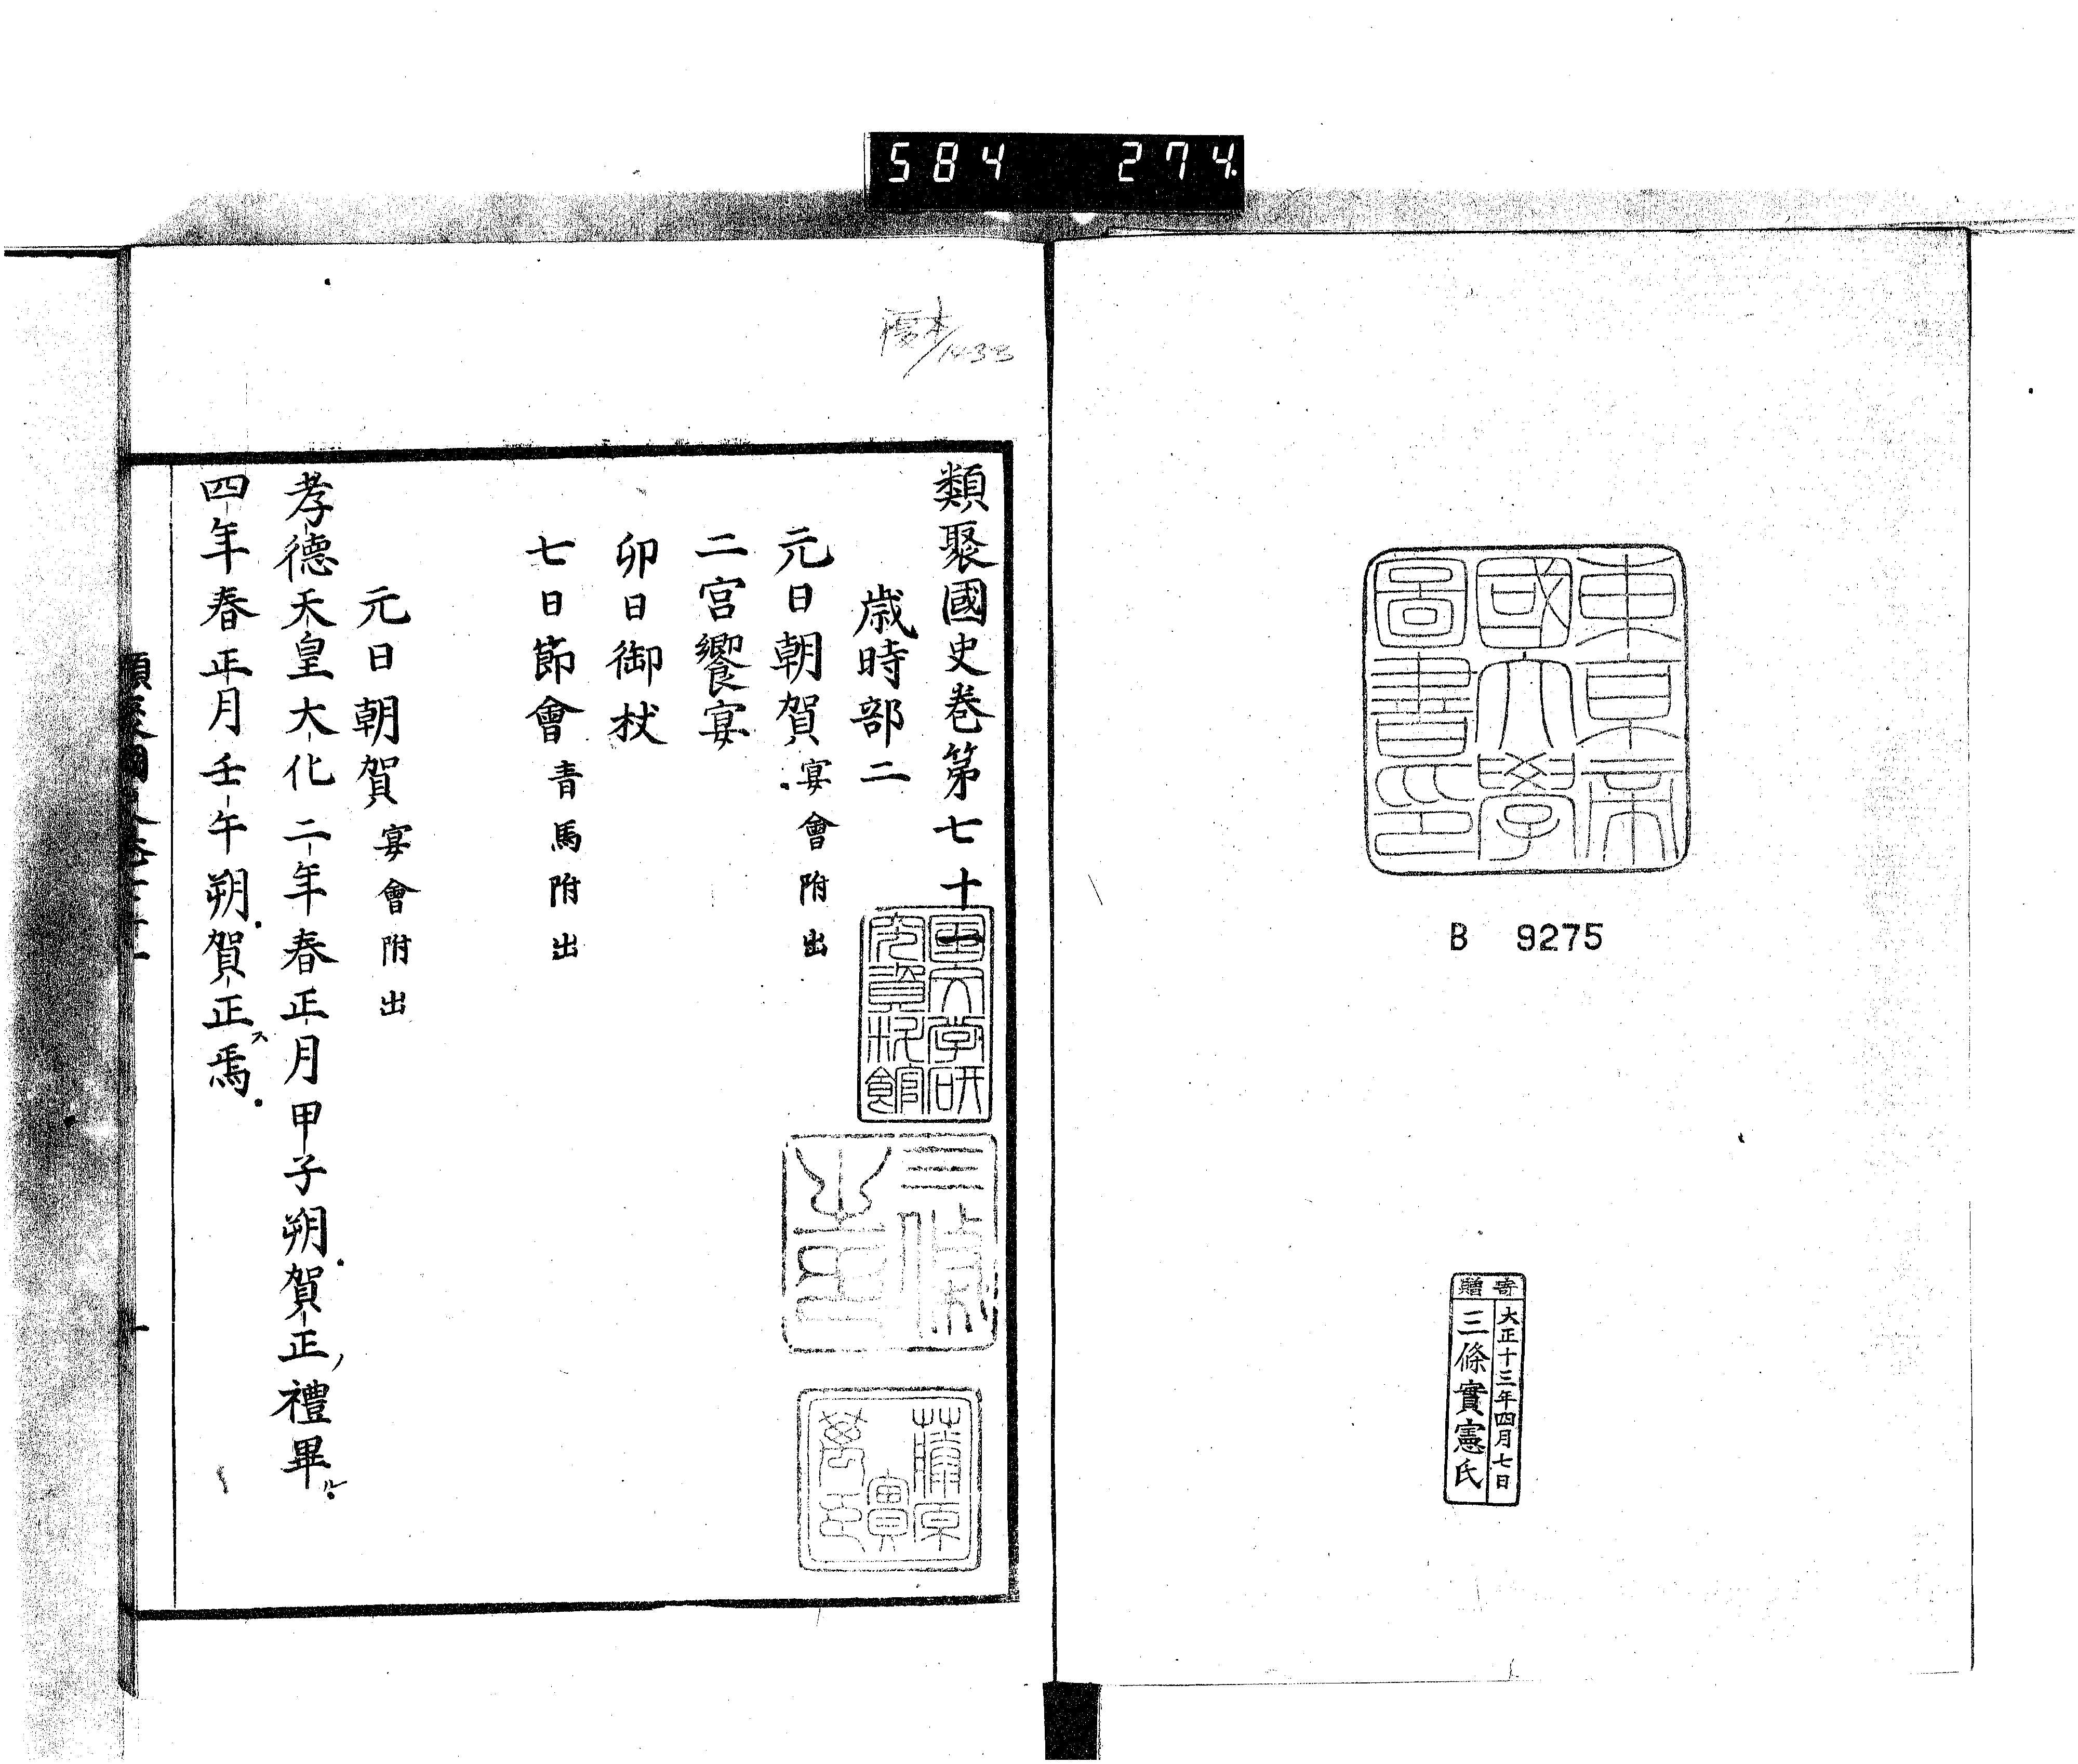 584 274
東京帝
國大學
圖書印
B 9275
寄贈
大正十三年四月七日
三條實憲氏
類聚國史巻第七十一
歳時部二
元日朝賀 宴會附出
二宮饗宴
卯日御杖
七日節會 青馬附出
元日朝賀 宴會附出
孝德天皇大化二年春正月甲子朔賀正禮畢
四年春正月壬午朔賀正ス焉
國文学研
究資料館
藤原
實